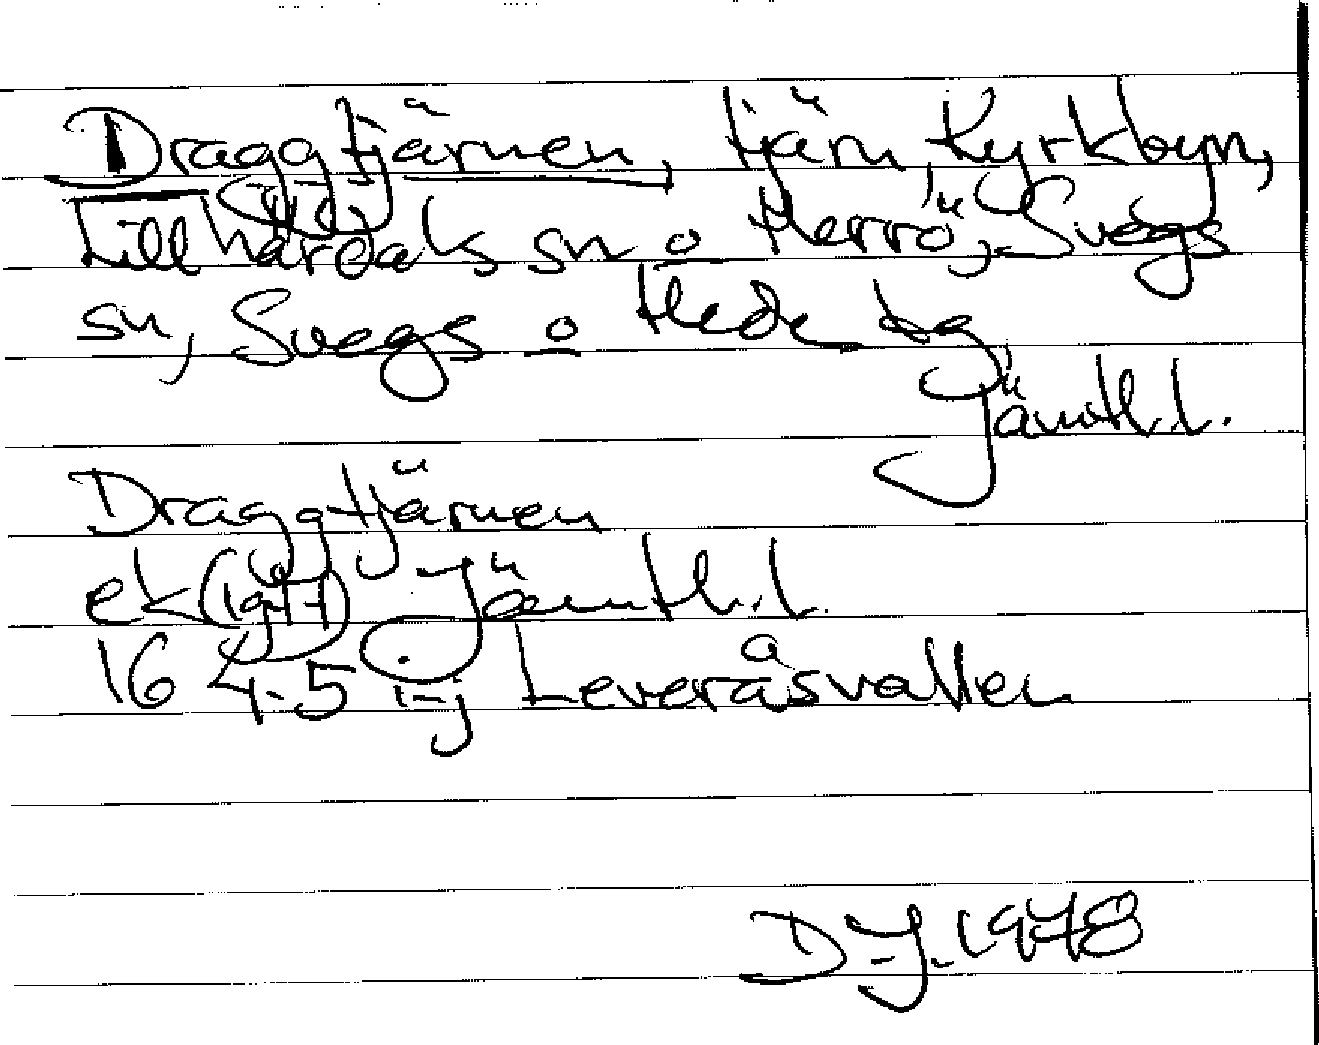 Draggtjärnen, tjärn, Kyrkbyn,
Lillhärdals sn o Herrö, Svegs
sn, Svegs o Hede tg
Jämtl. l.
Draggtjärnen
ek (1971) Jämtl. l.
16 4-5 i-j Leveråsvallen
D-J. 1978